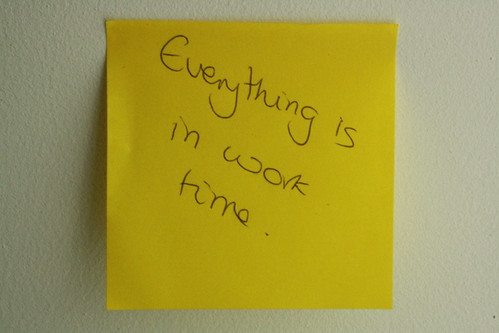 Everything is
in work
time.